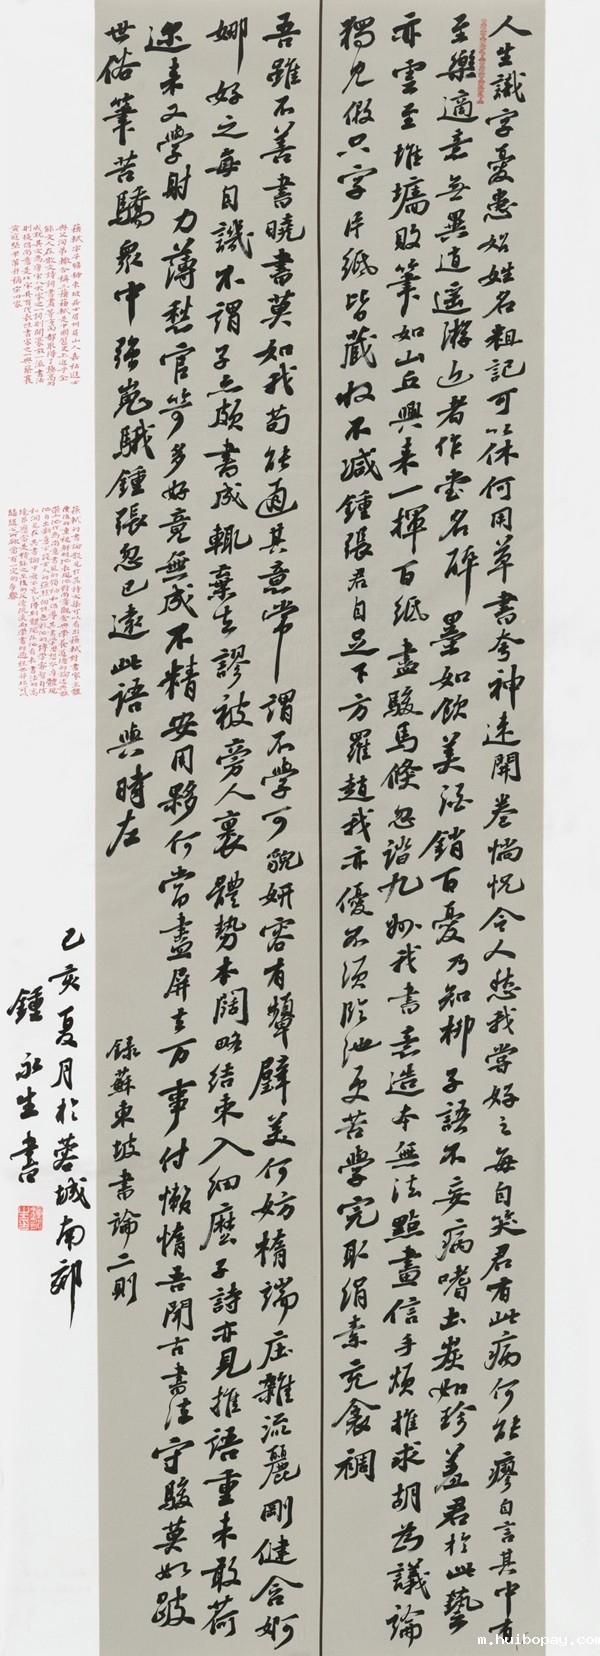 人生識字憂患始姓名粗記可以休何用草書夸神速開卷惝怳令人愁我嘗好之每自笑君有此病何能瘳自言其中有
至樂適意無異逍遥游近者作堂名醉墨如飲美酒銷百憂乃知柳子語不妄病嗜土炭如珍羞君於此藝
亦云至堆墻敗筆如山丘興來一揮百紙盡駿馬倏忽踏九州我書意造本無法點畫信手煩推求胡為議論
獨見假只字片紙皆藏收不減鍾張君自足下方羅趙我亦優不須臨池更苦學完取絹素充衾裯
吾雖不善書曉書莫如我苟能通其意常謂不學可貌妍容有顰璧美何妨橢端莊雜流麗剛健含婀
娜好之每自譏不謂子亦頗書成輒棄去謬被旁人裹體勢本闊略結束入細麼子詩亦見推語重未敢荷
邇來又學射力薄愁官笴多好竟無成不精安用夥何當盡屏去万事付懶惰吾聞古書法守駿莫如跛
世俗筆苦驕眾中強嵬騀鍾張忽已遠此語與時左
錄蘇東坡書論二則
己亥夏月於蓉城南郊
鍾永生書
m.huibopay.com